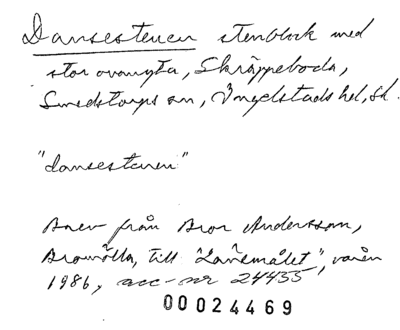 Dansestenen stenblock med
stor ovanyta, Skräppeboda,
Smedstorps sn, Ingelstads hd, Sk.
"dansestenen"
Brev från Bror Andersson,
Bromölla, till "Lånemålet", våren
1986, acc-nr 24455
00024469